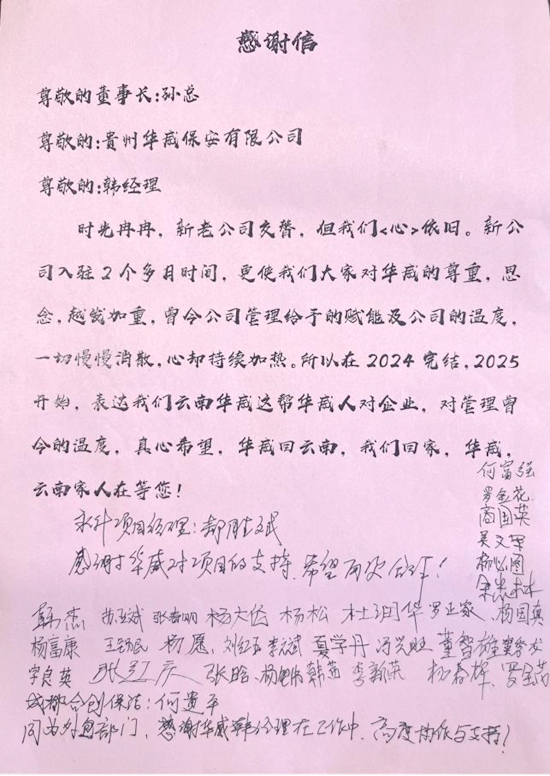 感谢信
尊敬的董事长:孙总
尊敬的:贵州华威保安有限公司
尊敬的:韩经理
时光冉冉，新老公司交替，但我们<心>依旧。新公
司入驻2个多月时间，更使我们大家对华威的尊重，思
念，越发加重，曾今公司管理给予的赋能及公司的温度，
一切慢慢消散，心却持续加热。所以在2024完结，2025
开始，表达我们云南华威这帮华威人对企业，对管理曾
今的温度，真心希望，华威回云南，我们回家，华威，
云南家人在等您！
何富强
罗金花
商国英
吴文军
项目经理：郝胜斌
感谢华威对项目的支持、希望再次合作！
韩杰 杨大伍 杨松 杜润华 罗正家 杨国真
杨富康 杨愿 刘红 李斌 夏学丹 冯兴旺 董智雄
字良英 张红庆 张晗 韩茜 李新荣 杨春辉
城都合创保洁：何贵平
同为外包部门，感谢华威韩经理在工作中、高度协作与支持！